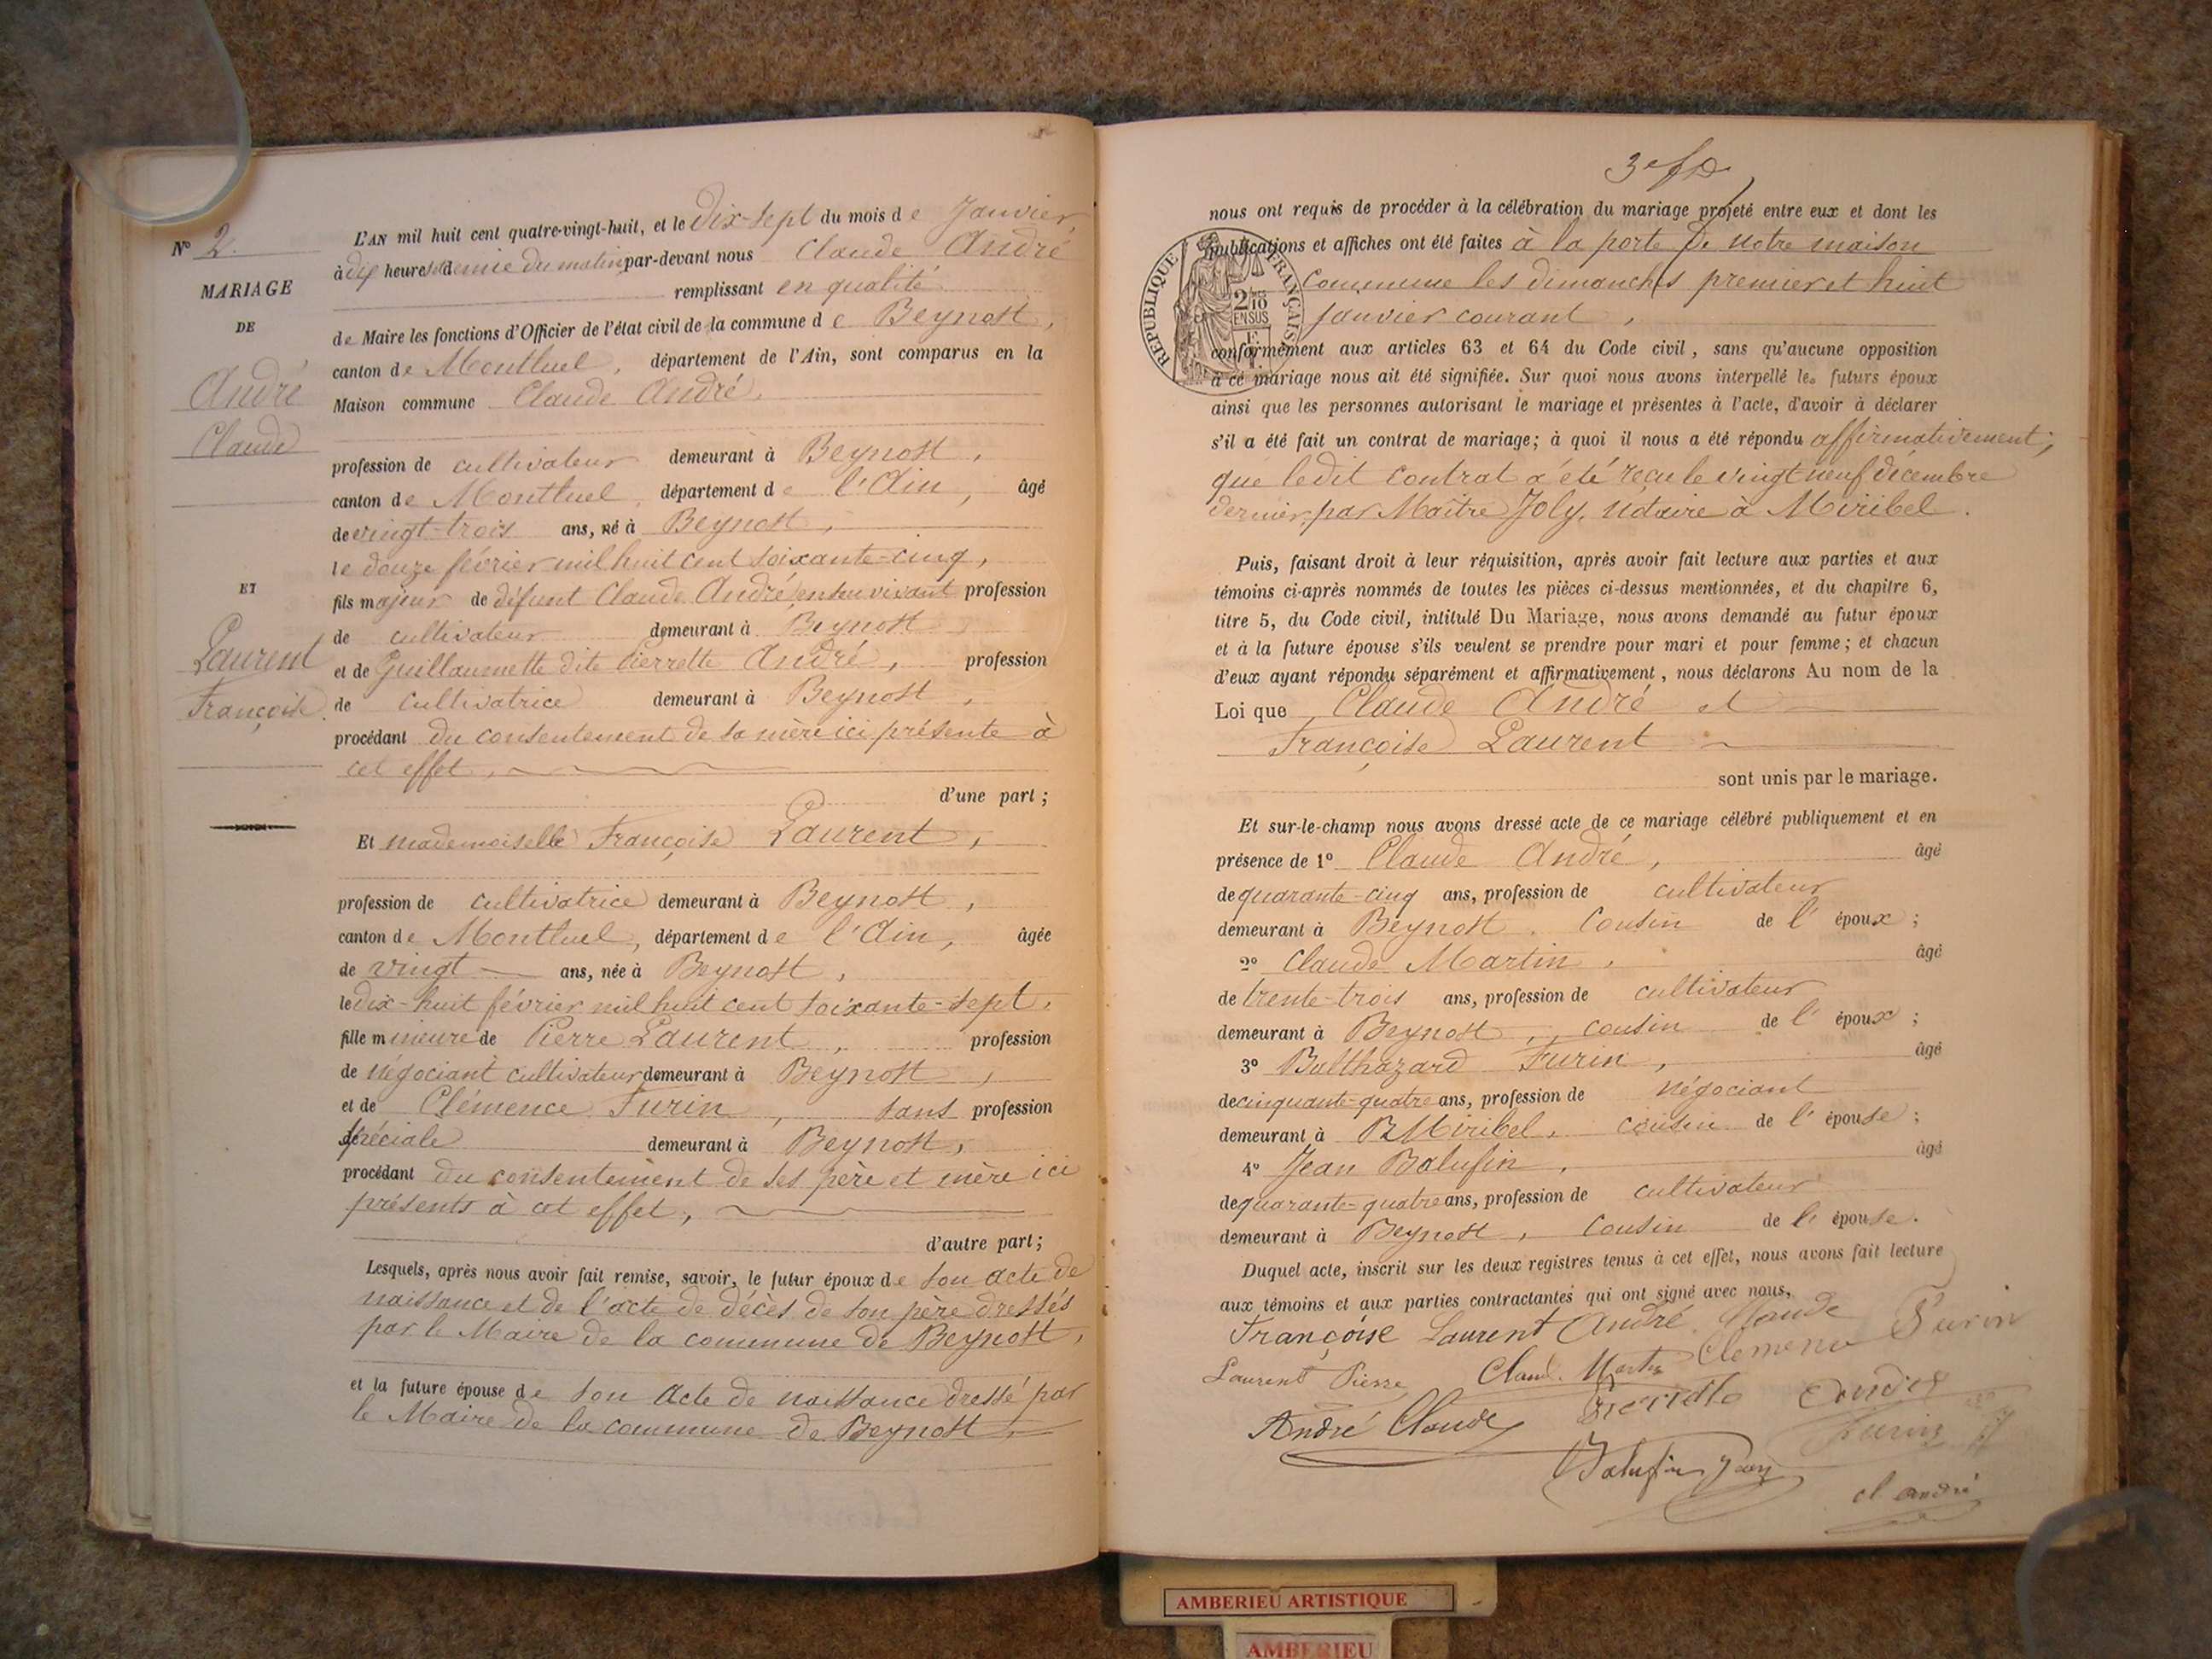 N° 2.
MARIAGE
DE
André
Claude
ET
Laurent
Françoise.
L'AN mil huit cent quatre-vingt-huit, et le dix-sept du mois de Janvier,
à dix heures et demie du matin par-devant nous Claude André
remplissant en qualité
de Maire les fonctions d'Officier de l'état civil de la commune de Beynost,
canton de Montluel, département de l'Ain, sont comparus en la
Maison commune Claude André,
profession de cultivateur demeurant à Beynost,
canton de Montluel, département de l'Ain, âgé
de vingt-trois ans, né à Beynost,
le douze février mil huit cent soixante-cinq,
fils majeur de défunt Claude André, en son vivant profession
de cultivateur demeurant à Beynost
et de Guillaumette dite Pierrette André, profession
de cultivatrice demeurant à Beynost,
procédant du consentement de sa mère ici présente à
cet effet,
d'une part;
Et mademoiselle Françoise Laurent,
profession de cultivatrice demeurant à Beynost,
canton de Montluel, département de l'Ain, âgée
de vingt ans, née à Beynost,
le dix-huit février mil huit cent soixante-sept,
fille mineure de Pierre Laurent, profession
de négociant cultivateur demeurant à Beynost,
et de Clémence Furin, sans profession
spéciale demeurant à Beynost,
procédant du consentement de ses père et mère ici
présents à cet effet,
d'autre part;
Lesquels, après nous avoir fait remise, savoir, le futur époux de son acte de
naissance et de l'acte de décès de son père dressés
par le Maire de la commune de Beynost,
et la future épouse de son acte de naissance dressé par
le Maire de la commune de Beynost,
nous ont requis de procéder à la célébration du mariage projeté entre eux et dont les
publications et affiches ont été faites à la porte de notre maison
commune les dimanches premier et huit
janvier courant,
RÉPUBLIQUE FRANÇAISE
2/10
EN SUS
conformément aux articles 63 et 64 du Code civil, sans qu'aucune opposition
à ce mariage nous ait été signifiée. Sur quoi nous avons interpellé les futurs époux
ainsi que les personnes autorisant le mariage et présentes à l'acte, d'avoir à déclarer
s'il a été fait un contrat de mariage; à quoi il nous a été répondu affirmativement;
que ledit contrat a été reçu le vingt neuf décembre
dernier, par Maître Joly, notaire à Miribel.
Puis, faisant droit à leur réquisition, après avoir fait lecture aux parties et aux
témoins ci-après nommés de toutes les pièces ci-dessus mentionnées, et du chapitre 6,
titre 5, du Code civil, intitulé Du Mariage, nous avons demandé au futur époux
et à la future épouse s'ils veulent se prendre pour mari et pour femme; et chacun
d'eux ayant répondu séparément et affirmativement, nous déclarons Au nom de la
Loi que Claude André et
Françoise Laurent
sont unis par le mariage.
Et sur-le-champ nous avons dressé acte de ce mariage célébré publiquement et en
présence de 1° Claude André, âgé
de quarante-cinq ans, profession de cultivateur
demeurant à Beynost, cousin de l'époux;
2° Claude Martin, âgé
de trente-trois ans, profession de cultivateur
demeurant à Beynost, cousin de l'époux;
3° Balthazard Furin, âgé
de cinquante-quatre ans, profession de négociant
demeurant à Miribel, cousin de l'épouse;
4° Jean Balufin, âgé
de quarante-quatre ans, profession de cultivateur
demeurant à Beynost, cousin de l'épouse.
Duquel acte, inscrit sur les deux registres tenus à cet effet, nous avons fait lecture
aux témoins et aux parties contractantes qui ont signé avec nous,
Françoise Laurent André Claude
Laurent Pierre Claud. Martin Clemence Furin
André Claude
Furin
Balufin Jean
cl andré
AMBERIEU ARTISTIQUE
AMBERIEU